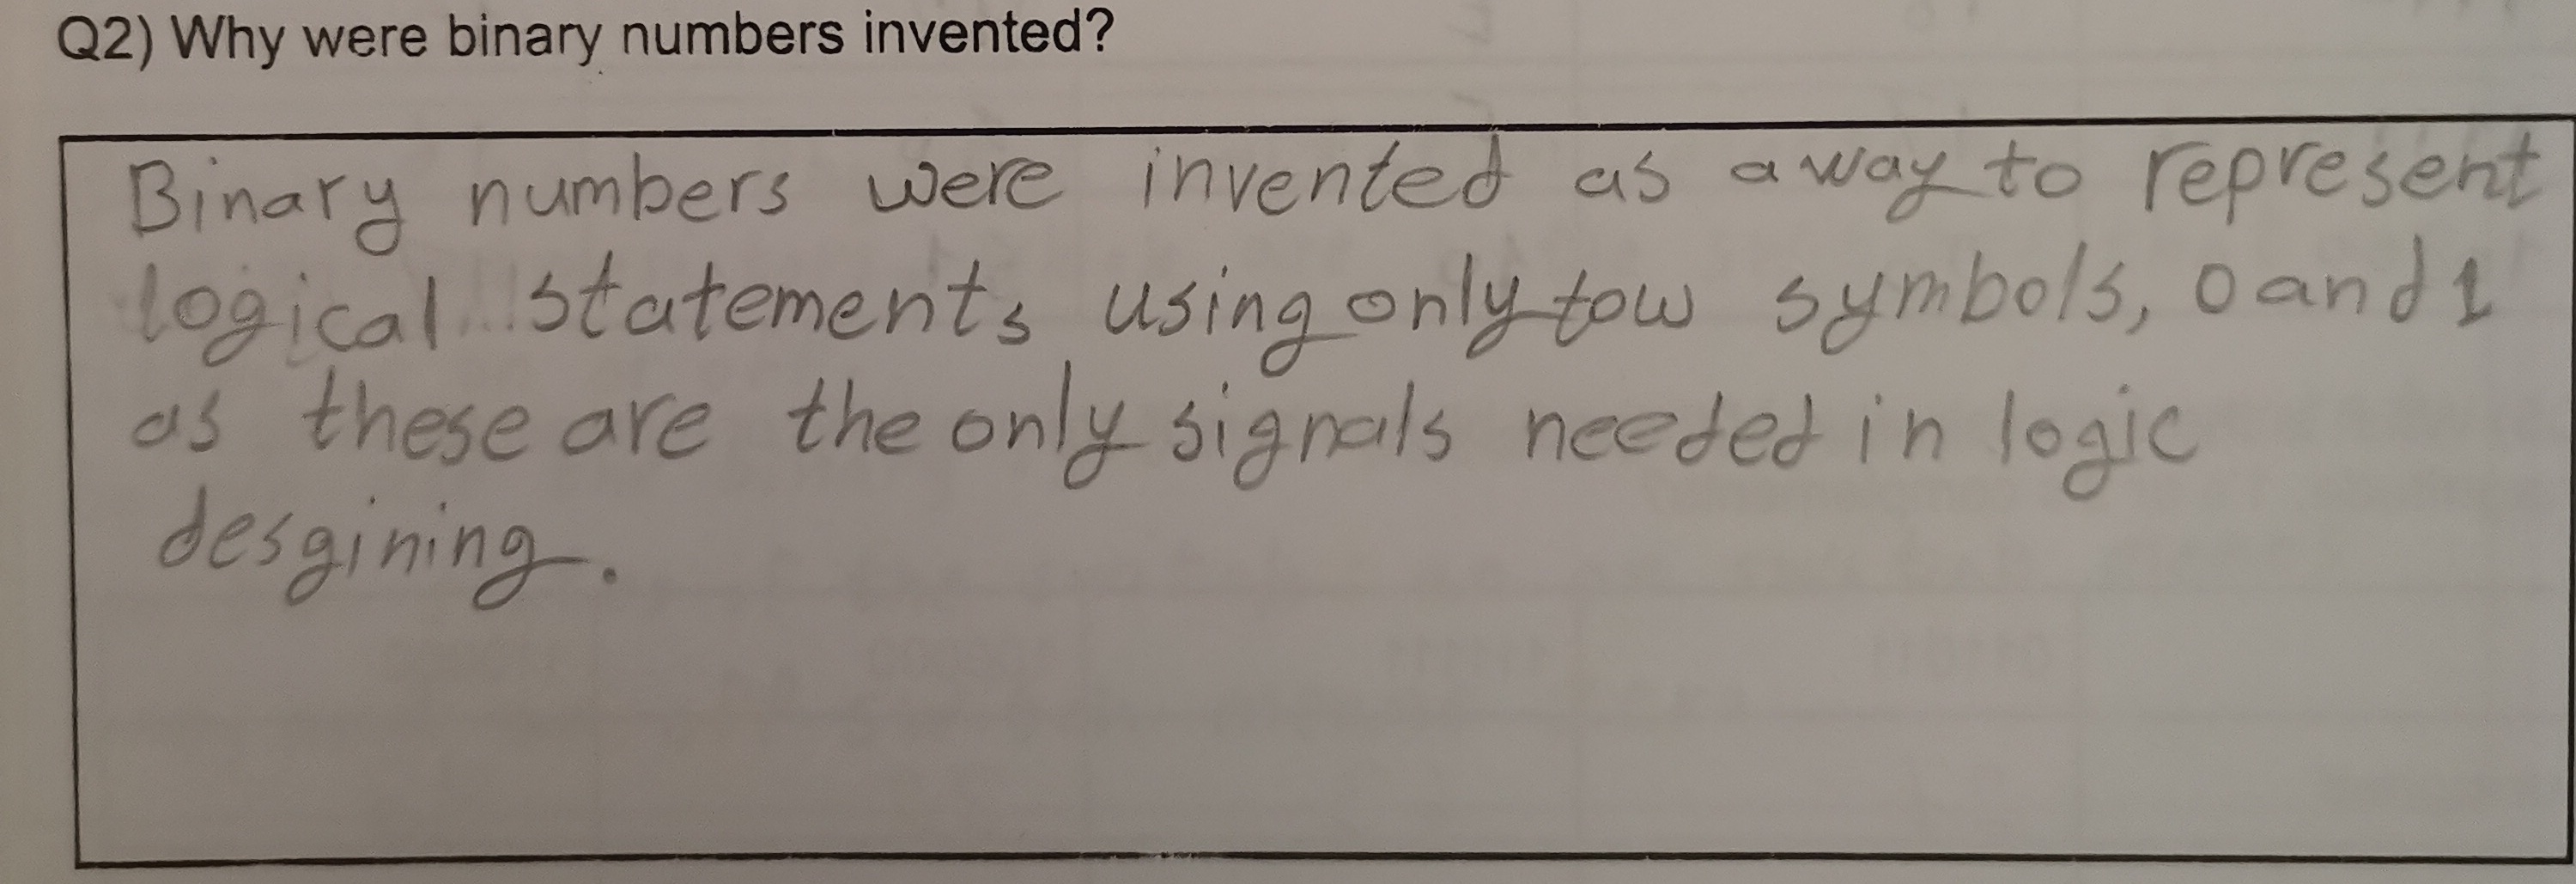 Q2) Why were binary numbers invented?
Binary numbers were invented as a way to represent
logical statements using only tow symbols, 0 and 1
as these are the only signals needed in logic
desgining.